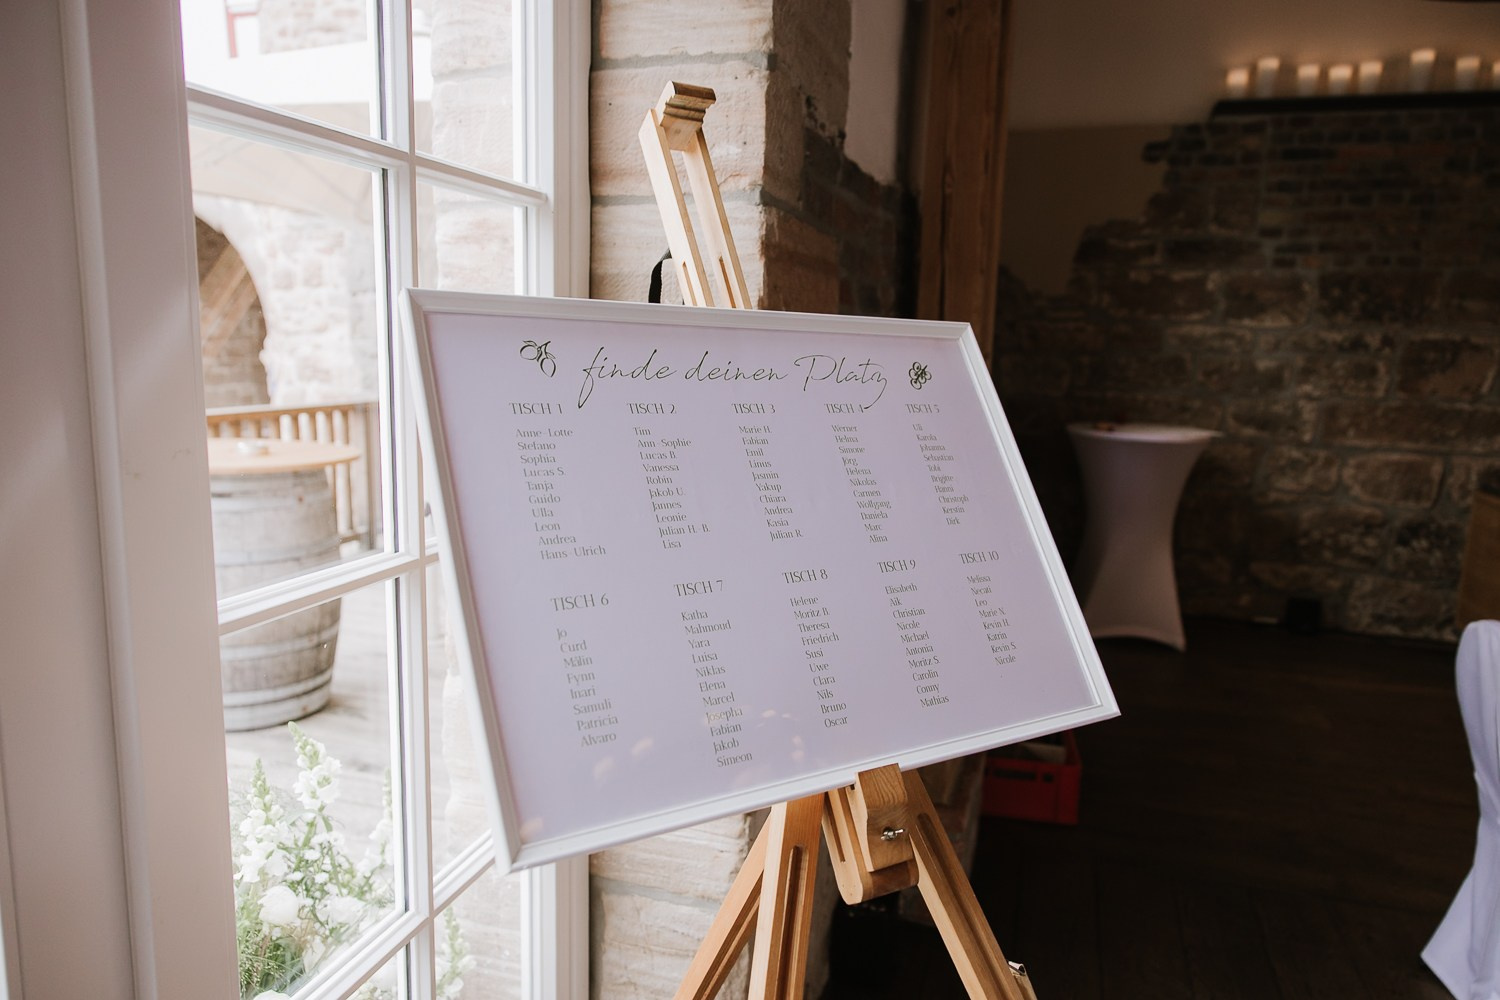 finde deinen Platz
TISCH 1
Anne-Lotte
Stefano
Sophia
Lucas S.
Tanja
Guido
Ulla
Leon
Andrea
Hans-Ulrich
TISCH 2
Tim
Ann-Sophie
Lucas B.
Vanessa
Robin
Jakob U.
Jannes
Leonie
Julian H.-B.
Lisa
TISCH 3
Marie H.
Fabian
Emil
Linus
Jasmin
Yakup
Chiara
Andrea
Kasia
Julian R.
TISCH 4
Werner
Helma
Simone
Jörg
Helena
Nikolas
Carmen
Wolfgang
Daniela
Marc
Alina
TISCH 5
Uli
Karola
Johanna
Sebastian
Tobi
Brigitte
Hanna
Christoph
Kerstin
Dirk
TISCH 6
Jo
Curd
Mâlin
Fynn
Inari
Samuli
Patricia
Alvaro
TISCH 7
Katha
Mahmoud
Yara
Luisa
Niklas
Elena
Marcel
Josepha
Fabian
Jakob
Simeon
TISCH 8
Helene
Moritz B.
Theresa
Friedrich
Susi
Uwe
Clara
Nils
Bruno
Oscar
TISCH 9
Elisabeth
Aik
Christian
Nicole
Michael
Antonia
Moritz S.
Carolin
Conny
Mathias
TISCH 10
Melissa
Necati
Leo
Marie N.
Kevin H.
Katrin
Kevin S.
Nicole